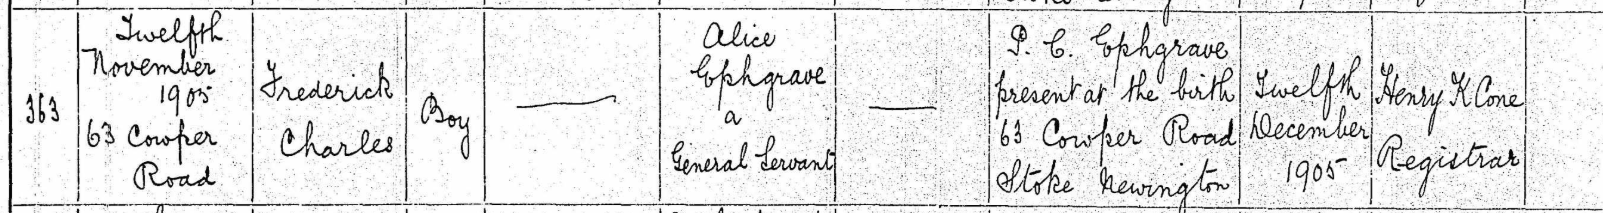 363
Twelfth
November
1905
63 Cowper
Road
Frederick
Charles
Boy
Alice
Ephgrave
a
General Servant
P. C. Ephgrave
present at the birth
63 Cowper Road
Stoke Newington
Twelfth
December
1905
Henry K Cone
Registrar